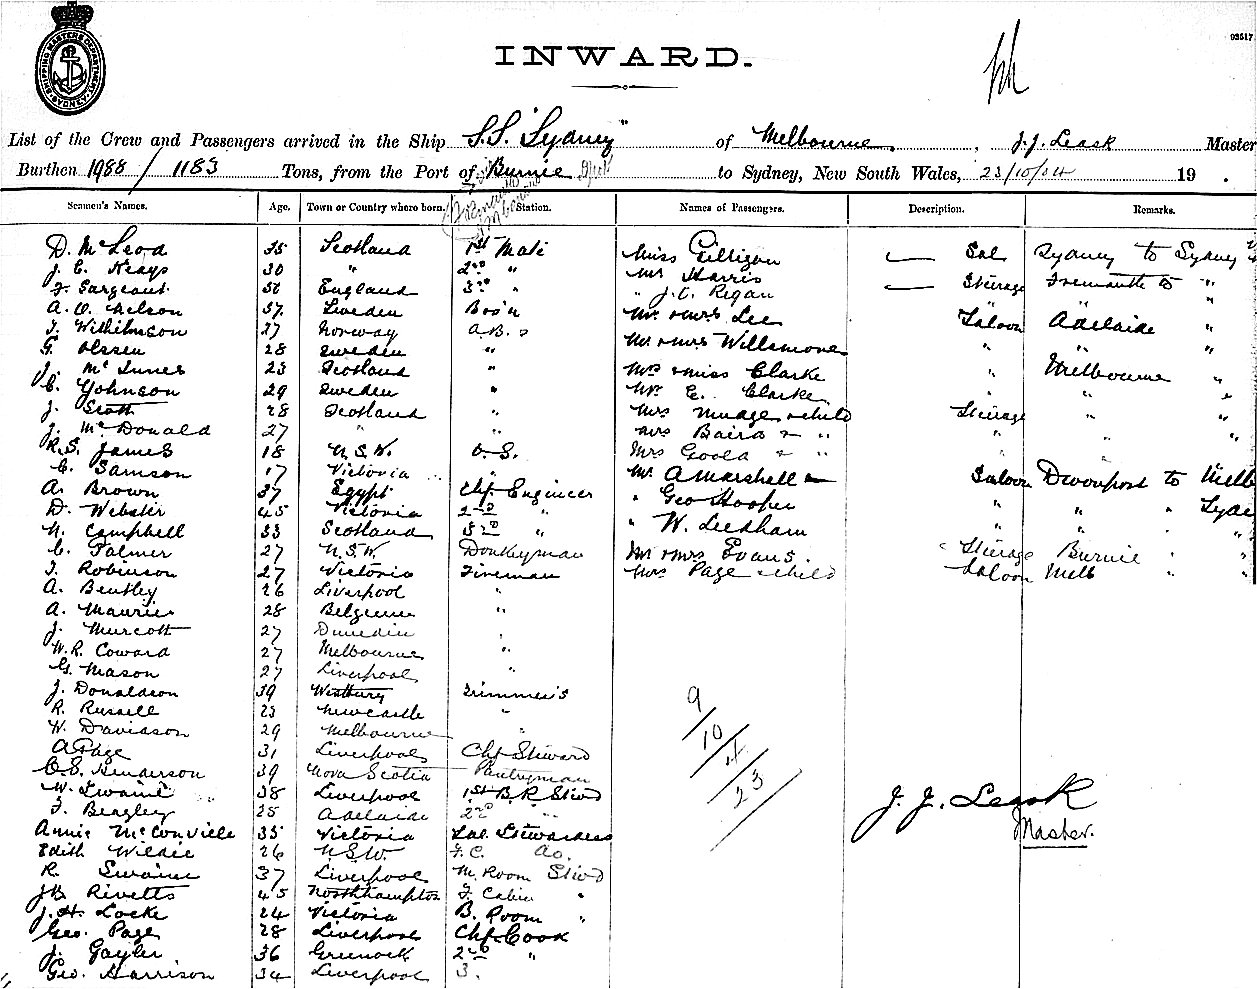 SHIPPING MASTER'S DEPARTMENT SYDNEY
93517
INWARD.
List of the Crew and Passengers arrived in the Ship S.S. "Sydney" of Melbourne, J.J. Leask Master
Burthen 1988 / 1183 Tons, from the Port of Burnie to Sydney, New South Wales, 23/10/04 19 .
Seamen's Names. Age. Town or Country where born. Station. Names of Passengers. Description. Remarks.
D. McLeod 35 Scotland 1st Mate Miss Gilligan — Sal Sydney to Sydney
J. E. Keays 30 " 2nd " Mr Harris — Steerage Fremantle to "
F. Sargeant 56 England 3rd " " J. C. Regan " " "
A. O. Nelson 37 Sweden Bos'n Mr & Mrs Lee Saloon Adelaide "
T. Wilhilmson 27 Norway A.B.s Mr & Mrs Willsmore " " "
G. Olssen 28 Sweden "
J. McInnes 23 Scotland " Mrs & Miss Clarke " Melbourne "
C. Johnson 29 Sweden " Mr E. Clarke " " "
J. Scott 28 Scotland " Mrs Mudge & child Steerage " "
J. McDonald 27 " " Mrs Baird & " " " "
R. S. James 18 N.S.W. O.S. Mrs Goold & " " " "
C. Samson 17 Victoria " Mr A Marshell Saloon Devonport to Melb
A. Brown 37 Egypt Chf Engineer " Geo Hooper " " " Syd
D. Webster 45 Victoria 2nd " " W. Leedham " " " "
N. Campbell 33 Scotland 3rd "
C. Palmer 27 N.S.W. Donkeyman Mr & Mrs Evans Steerage Burnie " "
T. Robinson 27 Victoria Fireman Mrs Page & child Saloon Melb " "
A. Bentley 26 Liverpool "
A. Maurice 28 Belgium "
J. Murcott 27 Dunedin "
W. R. Coward 27 Melbourne "
G. Mason 27 Liverpool "
J. Donaldson 39 Westbury Trimmers
R. Russell 23 Newcastle "
W. Davidson 29 Melbourne "
A Page 31 Liverpool Chf Steward
C. E. Henderson 39 Nova Scotia Pantryman
W. Swaine 38 Liverpool 1st B.R. Stwd
F. Beagley 25 Adelaide 2nd "
Annie McConville 35 Victoria Sal. Stewardess
Edith Wildie 26 N.S.W. F.C. do.
R. Swaine 37 Liverpool M. Room Stwd
J B Rivetts 45 Northhampton F. Cabin "
J. H. Locke 24 Victoria B. Room "
Geo. Page 28 Liverpool Chf Cook
J. Gayler 36 Greenock 2nd "
Geo. Harrison 34 Liverpool 3.
9/10/4/23
J. J. Leask
Master.